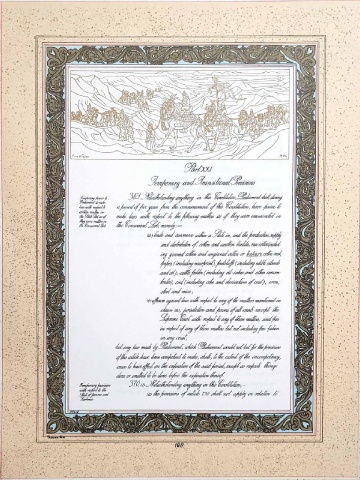 Part XXI
Temporary and Transitional Provisions
369. Notwithstanding anything in this Constitution, Parliament shall, during
a period of five years from the commencement of this Constitution, have power to
make laws with respect to the following matters as if they were enumerated in
the Concurrent List, namely:—
(a) trade and commerce within a State in, and the production, supply
and distribution of, cotton and woollen textiles, raw cotton (including
ginned cotton and unginned cotton or kapas), cotton seed,
paper (including newsprint), foodstuffs (including edible oilseeds
and oil), cattle fodder (including oil-cakes and other concentrates),
coal (including coke and derivatives of coal), iron,
steel and mica;
(b) offences against laws with respect to any of the matters mentioned in
clause (a), jurisdiction and powers of all courts except the
Supreme Court with respect to any of those matters, and fees
in respect of any of those matters but not including fees taken
in any court;
but any law made by Parliament, which Parliament would not but for the provisions
of this article have been competent to make, shall, to the extent of the incompetency,
cease to have effect on the expiration of the said period, except as respects things
done or omitted to be done before the expiration thereof.
Temporary provisions
with respect to the
State of Jammu and
Kashmir.
370. (1) Notwithstanding anything in this Constitution,—
(a) the provisions of article 238 shall not apply in relation to
168